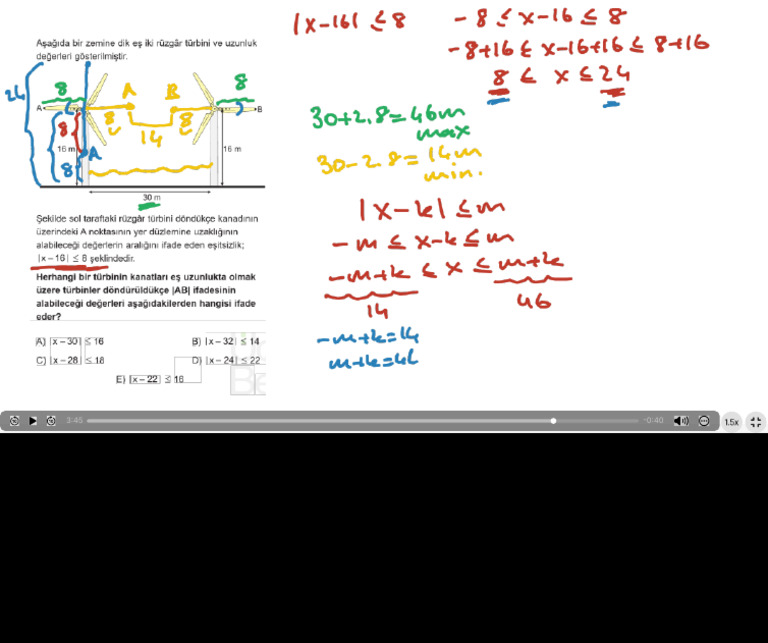 |x-16| ≤ 8
-8 ≤ x-16 ≤ 8
-8+16 ≤ x-16+16 ≤ 8+16
8 ≤ x ≤ 24
Aşağıda bir zemine dik eş iki rüzgâr türbini ve uzunluk
değerleri gösterilmiştir.
24
8
A
B
8
A
B
8
8
14
8
16 m
A
8
16 m
30 m
30+2.8=46m
max
30-2.8=14m
min.
Şekilde sol taraftaki rüzgâr türbini döndükçe kanadının
üzerindeki A noktasının yer düzlemine uzaklığının
alabileceği değerlerin aralığını ifade eden eşitsizlik;
|x – 16| ≤ 8 şeklindedir.
Herhangi bir türbinin kanatları eş uzunlukta olmak
üzere türbinler döndürüldükçe |AB| ifadesinin
alabileceği değerleri aşağıdakilerden hangisi ifade
eder?
A) |x – 30| ≤ 16
B) |x – 32| ≤ 14
C) |x – 28| ≤ 18
D) |x – 24| ≤ 22
E) |x – 22| ≤ 16
|x-k| ≤ m
-m ≤ x-k ≤ m
-m+k ≤ x ≤ m+k
14
46
-m+k=14
m+k=46
3:45
-0:40
1.5x